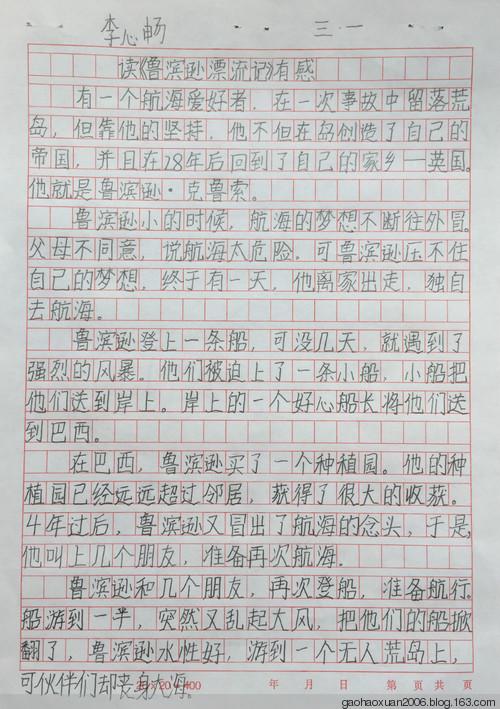 李心畅 三.一
读《鲁滨逊漂流记》有感
有一个航海爱好者，在一次事故中留落荒
岛，但靠他的坚持，他不但在岛创造了自己的
帝国，并且在28年后回到了自己的家乡—英国。
他就是鲁滨逊·克鲁索。
鲁滨逊小的时候，航海的梦想不断往外冒。
父母不同意，说航海太危险。可鲁滨逊压不住
自己的梦想，终于有一天，他离家出走，独自
去航海。
鲁滨逊登上一条船，可没几天，就遇到了
强烈的风暴。他们被迫上了一条小船，小船把
他们送到岸上。岸上的一个好心船长将他们送
到巴西。
在巴西，鲁滨逊买了一个种植园。他的种
植园已经远远超过邻居，获得了很大的收获。
4年过后，鲁滨逊又冒出了航海的念头，于是，
他叫上几个朋友，准备再次航海。
鲁滨逊和几个朋友，再次登船，准备航行。
船游到一半，突然又乱起大风，把他们的船掀
翻了，鲁滨逊水性好，游到一个无人荒岛上，
可伙伴们却丧身大海。
20 400 年 月 日 第 页 共 页
gaohaoxuan2006.blog.163.com